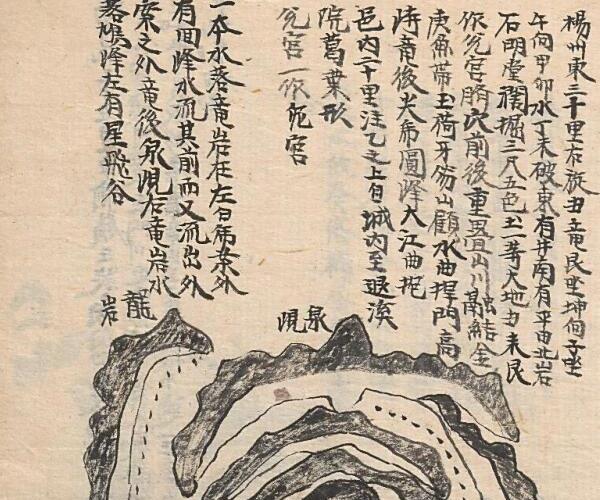 楊州東三十里右旋丑竜艮坐坤向子坐
午向甲卯水丁未破東有井南有平田北岩
石明堂裀掘三尺五色土一等大地丑未艮
依兌宮臍穴前後重疊山川融結金
庚魚帶玉荷牙山顧水曲捍門高
峙竜後尖圓峰大江曲抱
邑內二十里注乙之上自城內至退溪
院葛葉形
兌宮一依乾宮
一本水落竜岩在左白案外
有回峰水流其前而又流出外
案之外竜後泉峴右竜岩水
落鳩峰左有星飛谷
泉峴
龍岩